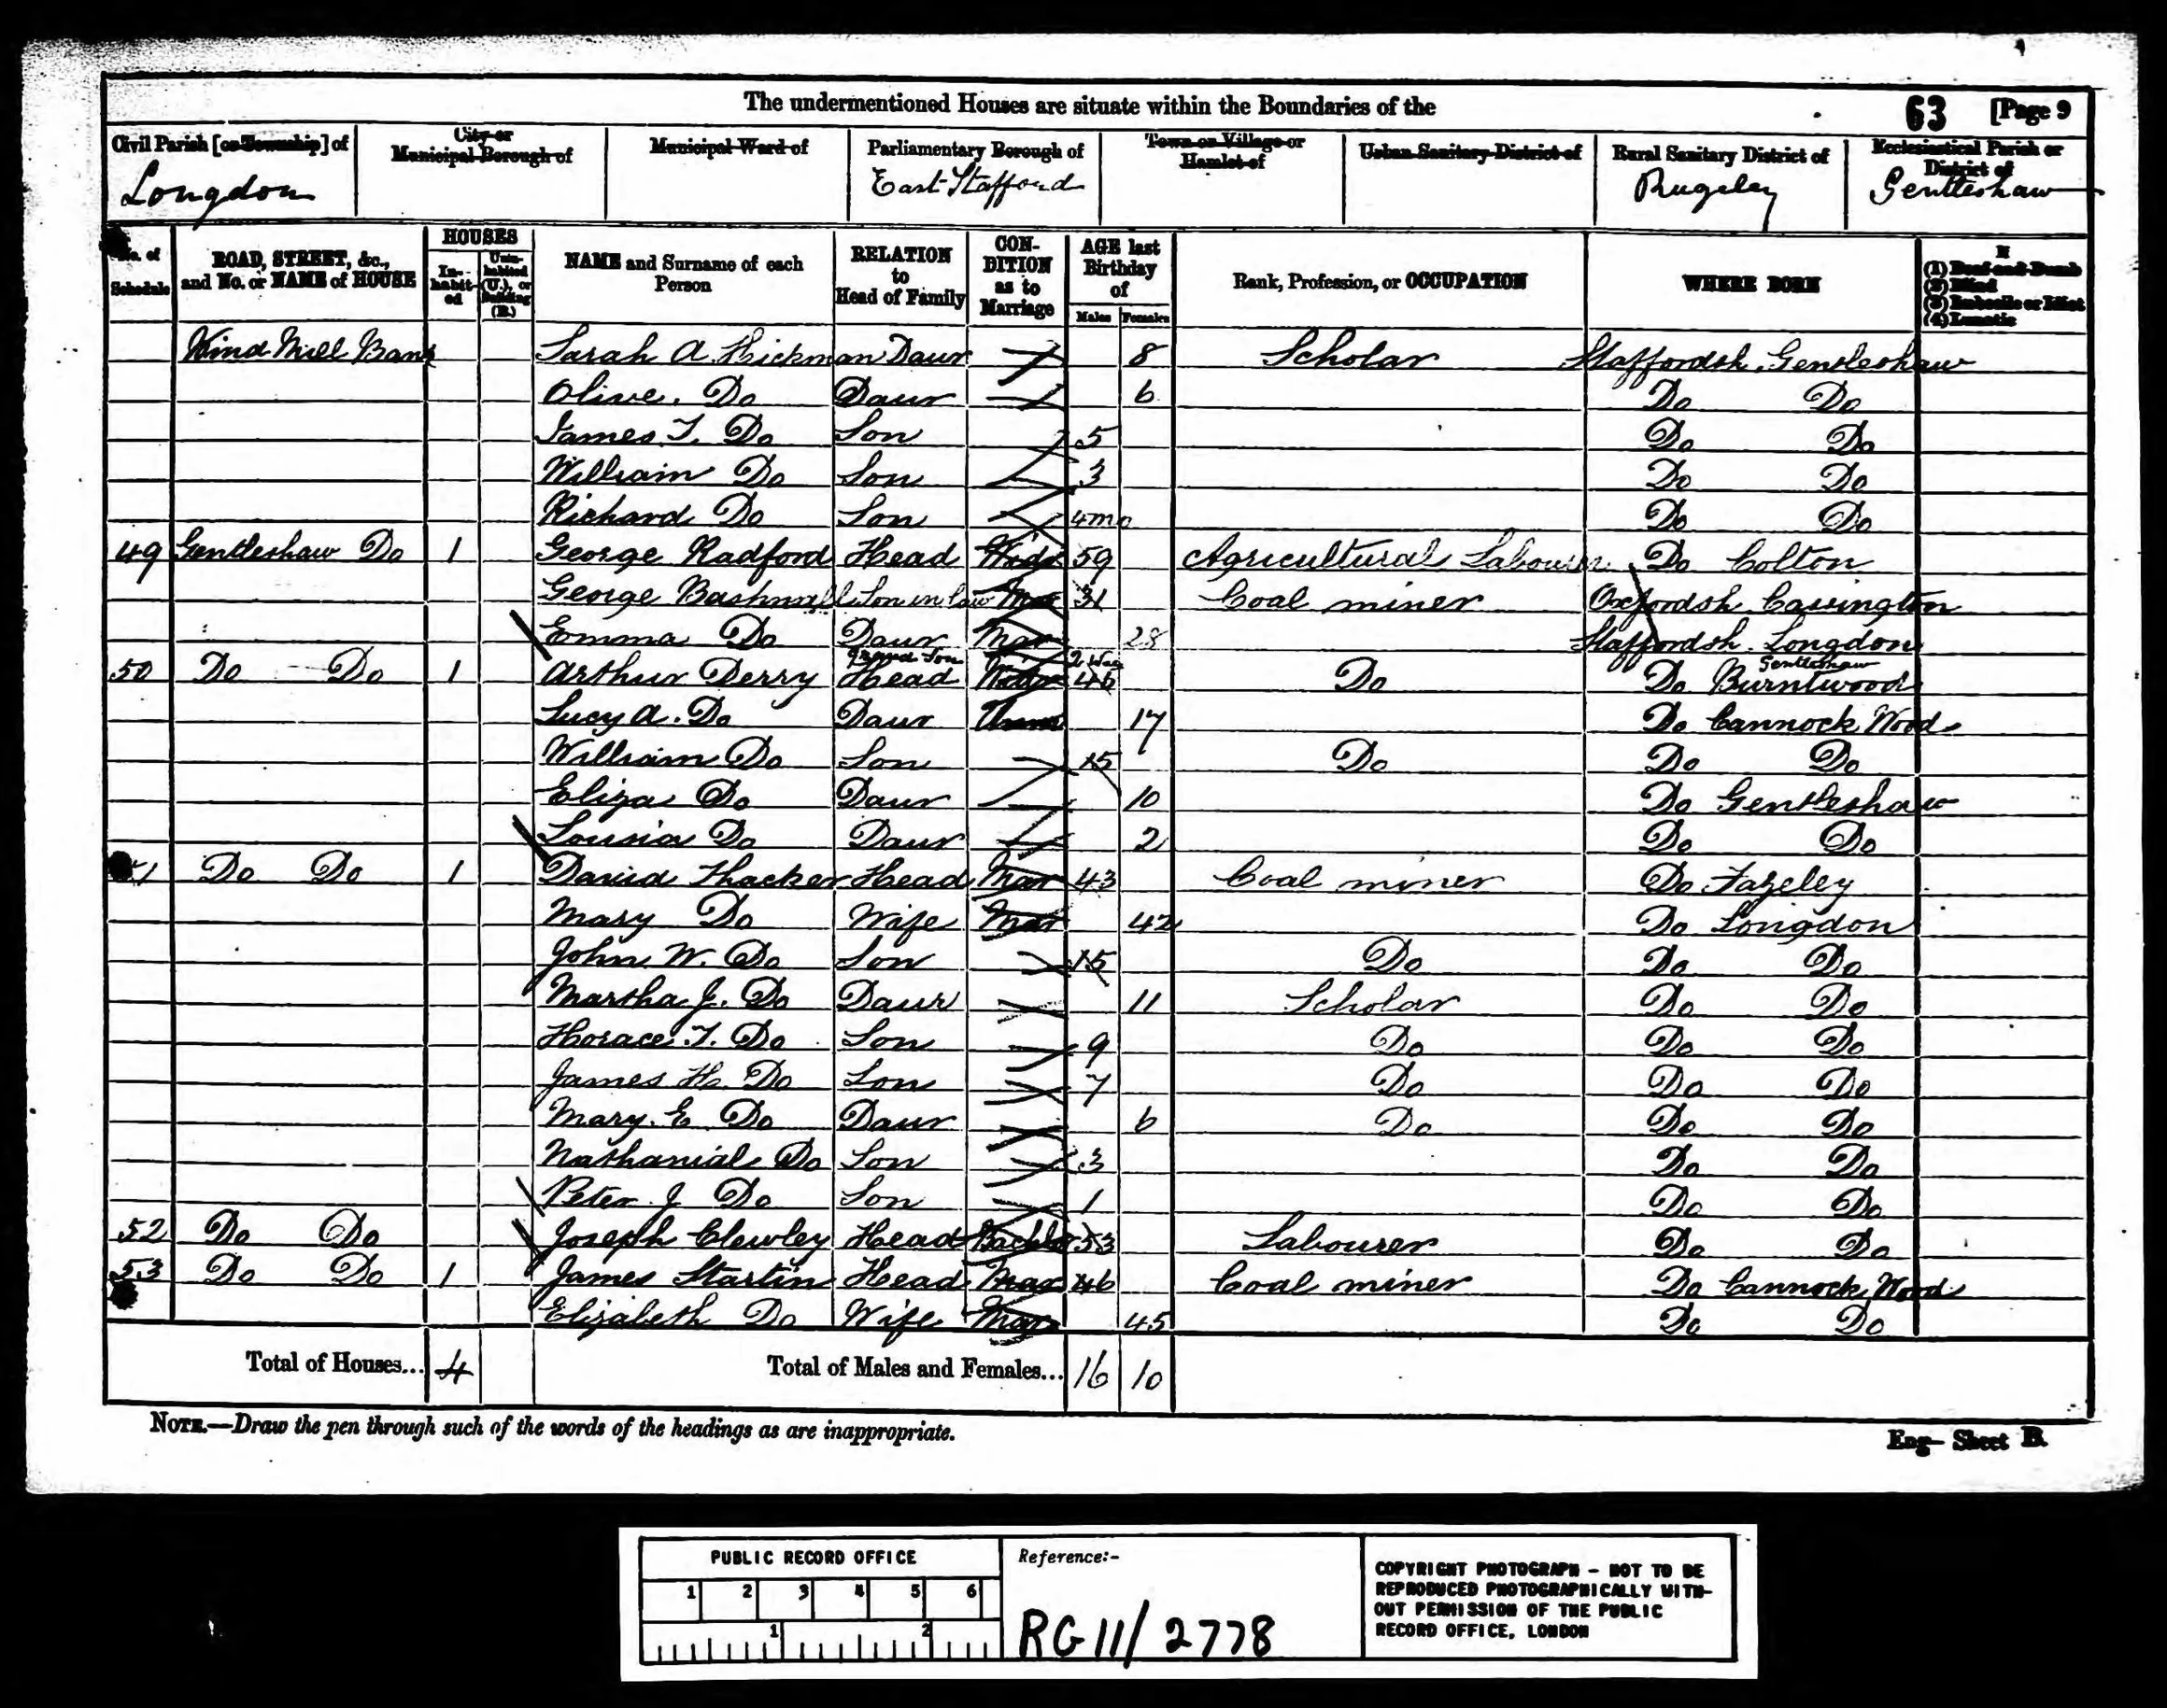 The undermentioned Houses are situate within the Boundaries of the 63 [Page 9
Civil Parish [or Township] of Longdon
City or Municipal Borough of
Municipal Ward of
Parliamentary Borough of East Stafford
Town or Village or Hamlet of
Urban Sanitary District of
Rural Sanitary District of Rugeley
Ecclesiastical Parish or District of Gentleshaw
No. of Schedule
ROAD, STREET, &c., and No. or NAME of HOUSE
HOUSES
Inhabited
Uninhabited (U.), or Building (B.)
NAME and Surname of each Person
RELATION to Head of Family
CONDITION as to Marriage
AGE last Birthday of
Males Females
Rank, Profession, or OCCUPATION
WHERE BORN
If
(1) Deaf-and-Dumb
(2) Blind
(3) Imbecile or Idiot
(4) Lunatic
Wind Mill Bank Sarah A Hickman Daur 8 Scholar Staffordsh. Gentleshaw
Olive. Do Daur 6 Do Do
James T. Do Son 5 Do Do
William Do Son 3 Do Do
Richard Do Son 4mo Do Do
49 Gentleshaw Do 1 George Radford Head 59 Agricultural Labourer Do Colton
George Son in law Mar 31 Coal miner Oxfordsh
Emma Do Daur Mar 28 Staffordsh. Longdon
Grand Son Gentleshaw
50 Do Do 1 Arthur Derry Head 46 Do Do Burntwood
Lucy A. Do Daur 17 Do Cannock Wood
William Do Son 15 Do Do Do
Eliza Do Daur 10 Do Gentleshaw
Lousia Do Daur 2 Do Do
Do Do 1 David Thacker Head Mar 43 Coal miner Do Fazeley
Mary Do Wife Mar 42 Do Longdon
John W. Do Son 15 Do Do Do
Martha J. Do Daur 11 Scholar Do Do
Horace T. Do Son 9 Do Do Do
James H. Do Son 7 Do Do Do
Mary. E Do Daur 6 Do Do Do
Nathanial Do Son 3 Do Do
Peter J Do Son 1 Do Do
52 Do Do Joseph Clewley Head 53 Labourer Do Do
53 Do Do 1 James Startin Head Mar 46 Coal miner Do Cannock Wood
Elizabeth Do Wife Mar 45 Do Do
Total of Houses... 4 Total of Males and Females... 16 10
NOTE.—Draw the pen through such of the words of the headings as are inappropriate.
Eng— Sheet B.
PUBLIC RECORD OFFICE
1 2 3 4 5 6
1 2
Reference:-
RG 11/2778
COPYRIGHT PHOTOGRAPH - NOT TO BE
REPRODUCED PHOTOGRAPHICALLY WITH-
OUT PERMISSION OF THE PUBLIC
RECORD OFFICE, LONDON